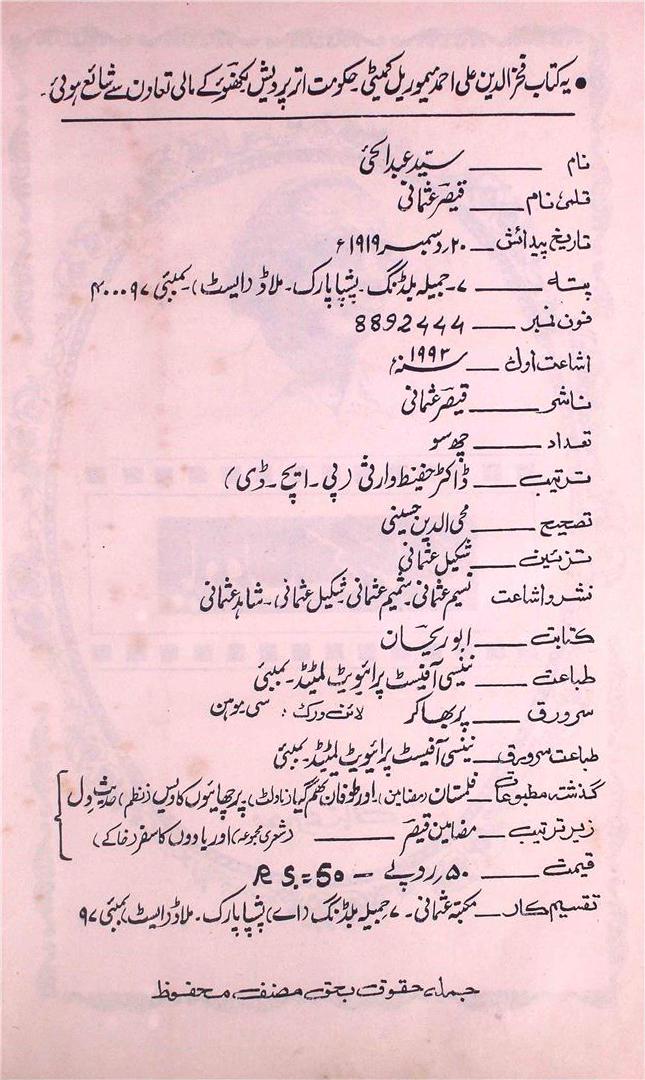 ● یہ کتاب فخرالدین علی احمد میموریل کمیٹی۔ حکومت اترپردیش لکھنؤ کے مالی تعاون سے شائع ہوئی۔
نام ــــــ سیّد عبدالحئ
قلمی نام ــــــ قیصر عثمانی
تاریخ پیدائش ــــــ ۲۰؍دسمبر ۱۹۱۹ء
پتہ ــــــ ۷۔جمیلہ بلڈنگ۔ پشپا پارک۔ ملاڈ (ایسٹ)۔ بمبئی ۴۰۰۰۹۷
فون نمبر ــــــ 8892444
اشاعت اول ــــــ ۱۹۹۳ء
ناشر ــــــ قیصر عثمانی
تعداد ــــــ چھ سو
ترتیب ــــــ ڈاکٹر حفیظ وارثی (پی۔ایچ۔ڈی)
تصحیح ــــــ محی الدین حسینی
تزئین ــــــ شکیل عثمانی
نشرواشاعت نسیم عثمانی۔ شمیم عثمانی۔ شکیل عثمانی۔ شاہد عثمانی
کتابت ــــــ ابو ریحان
طباعت ــــــ نینسی آفیسٹ پرائیویٹ لمٹیڈ۔ بمبئی
سرورق ــــــ پربھاکر لائن ورک: سی موہن
طباعت سرورق ــــــ نینسی آفیسٹ پرائیویٹ لمٹیڈ۔ بمبئی
گذشتہ مطبوعات ــــــ فلمستان (مضامین)۔ اور طوفان تھم گیا (ناولٹ) پرچھائیوں کا دیس (نظم) حدیثِ دل
زیر ترتیب ــــــ مضامین قیصر ــــــ (شعری مجموعہ) اور یادوں کا سفر (خاکے)
قیمت ــــــ ۵۰؍روپے — RS.=50
تقسیم کار ــــــ مکتبہ عثمانی۔ ۷؍جمیلہ بلڈنگ (اے) پشپا پارک۔ ملاڈ (ایسٹ) بمبئی ۹۷
جملہ حقوق بحق مصنف محفوظ